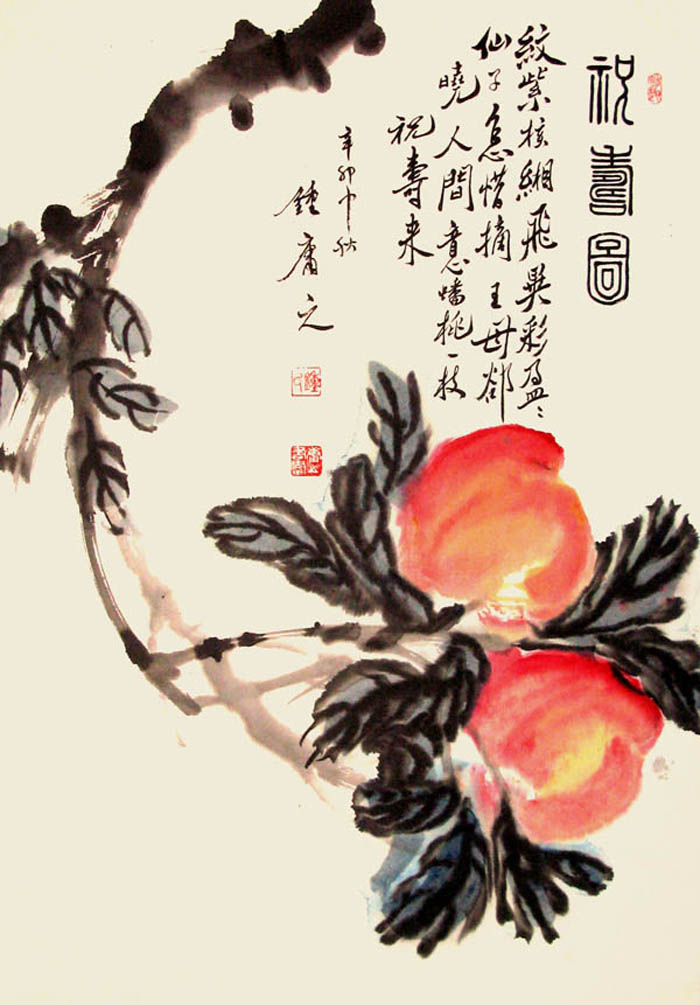 祝壽圖
紋紫核緗飛異彩盈盈
仙子怎惜摘王母郤
曉人間意蟠桃一枝
祝壽来
辛卯中秋
鍾庸之